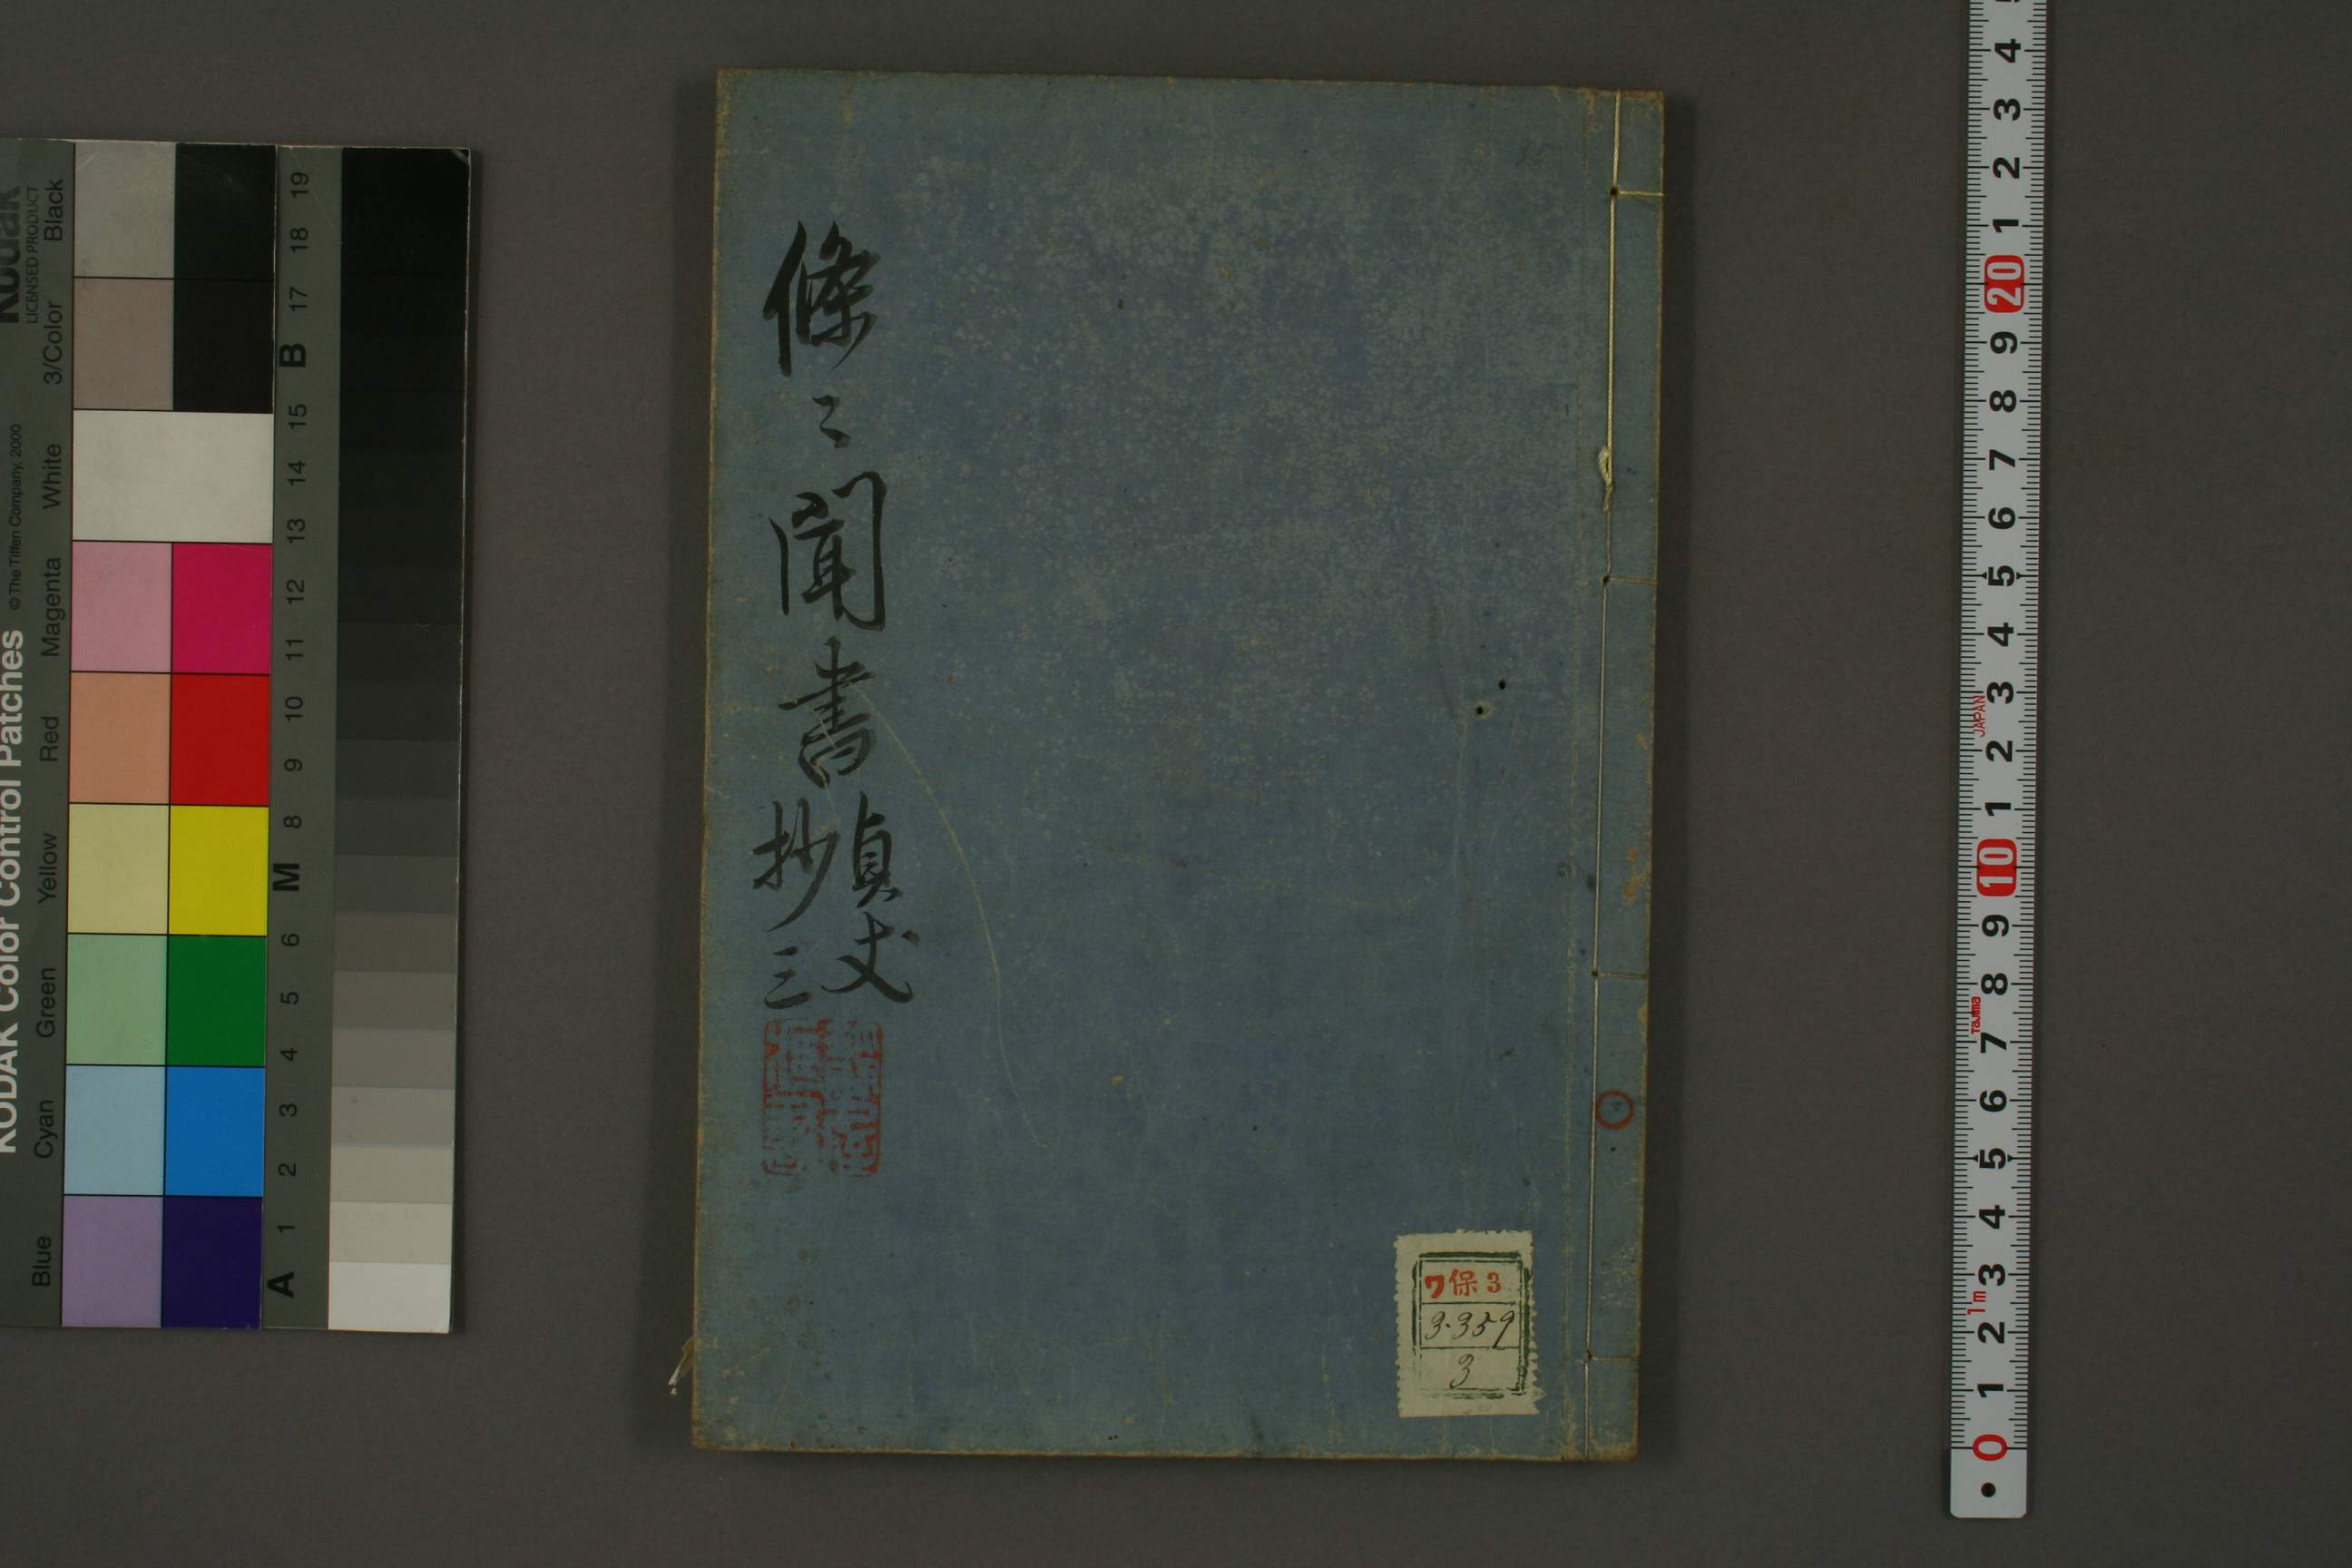 條〻聞書
貞丈
抄三
ワ保3
3·359
3
KODAK Color Control Patches
© The Tiffen Company, 2000
Kodak
LICENSED PRODUCT
Blue Cyan Green Yellow Red Magenta White 3/Color Black
A 1 2 3 4 5 6 M 8 9 10 11 12 13 14 15 B 17 18 19
0 1 2 3 4 5 6 7 8 9 10 1 2 3 4 5 6 7 8 9 20 1 2 3 4
1m
Tajima
JAPAN